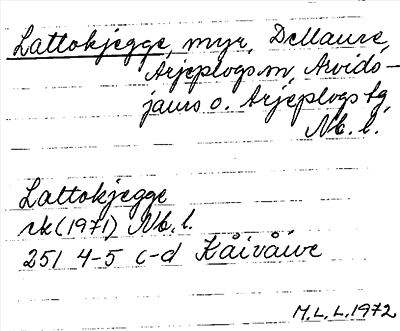 Lattokjegge, myr, Dellaure,
Arjeplogs m, Arvids-
jaurs o. Arjeplogs tg,
Nb. l.
Lattokjegge
rk (1971) Nb. l.
251 4-5 c-d Kåivåive
M. L. L. 1972